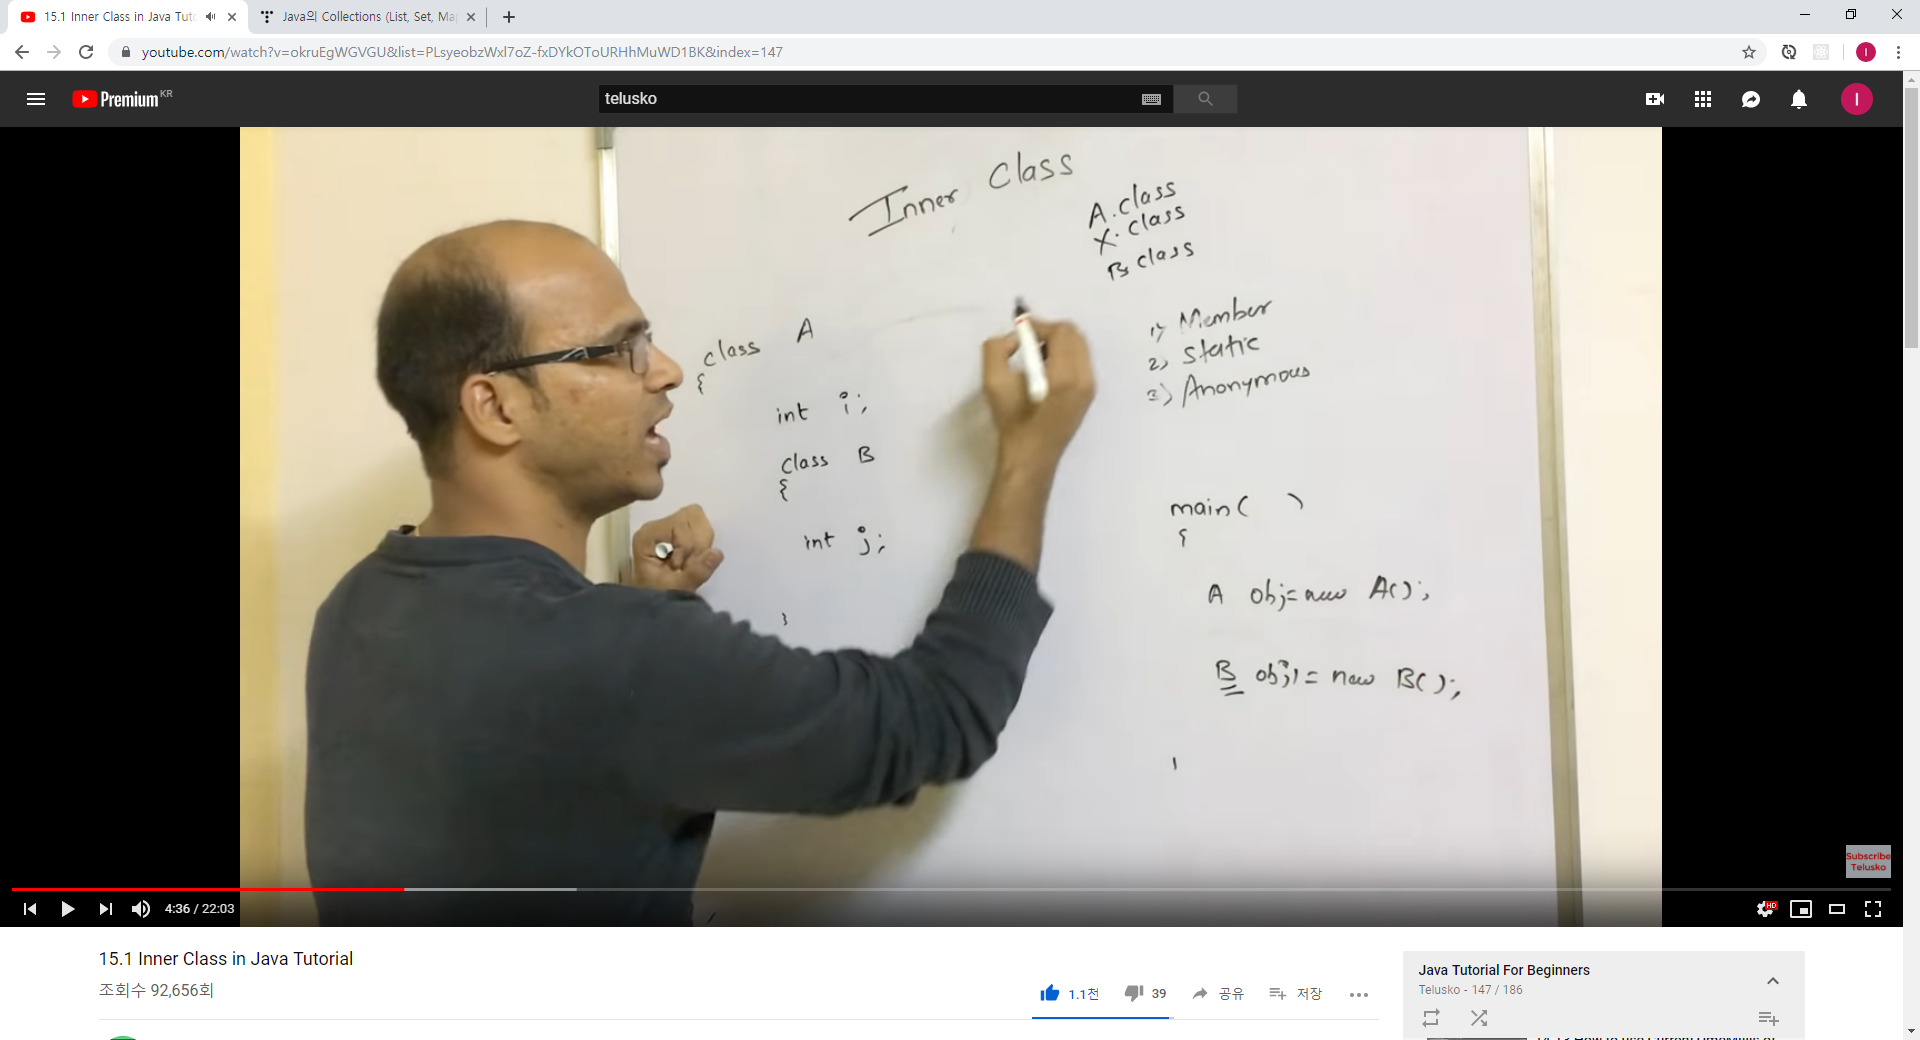 15.1 Inner Class in Java Tuto
Java의 Collections (List, Set, Ma
youtube.com/watch?v=okruEgWGVGU&list=PLsyeobzWxl7oZ-fxDYkOToURHhMuWD1BK&index=147
I
Premium KR
telusko
I
Inner Class
A.class
X.class
B class
class A
{
int i;
class B
{
int j;
}
1) Member
2) Static
3) Anonymous
main( )
{
A obj=new A();
B obj1= new B();
Subscribe
Telusko
4:36 / 22:03
HD
15.1 Inner Class in Java Tutorial
조회수 92,656회
1.1천
39
공유
저장
Java Tutorial For Beginners
Telusko - 147 / 186